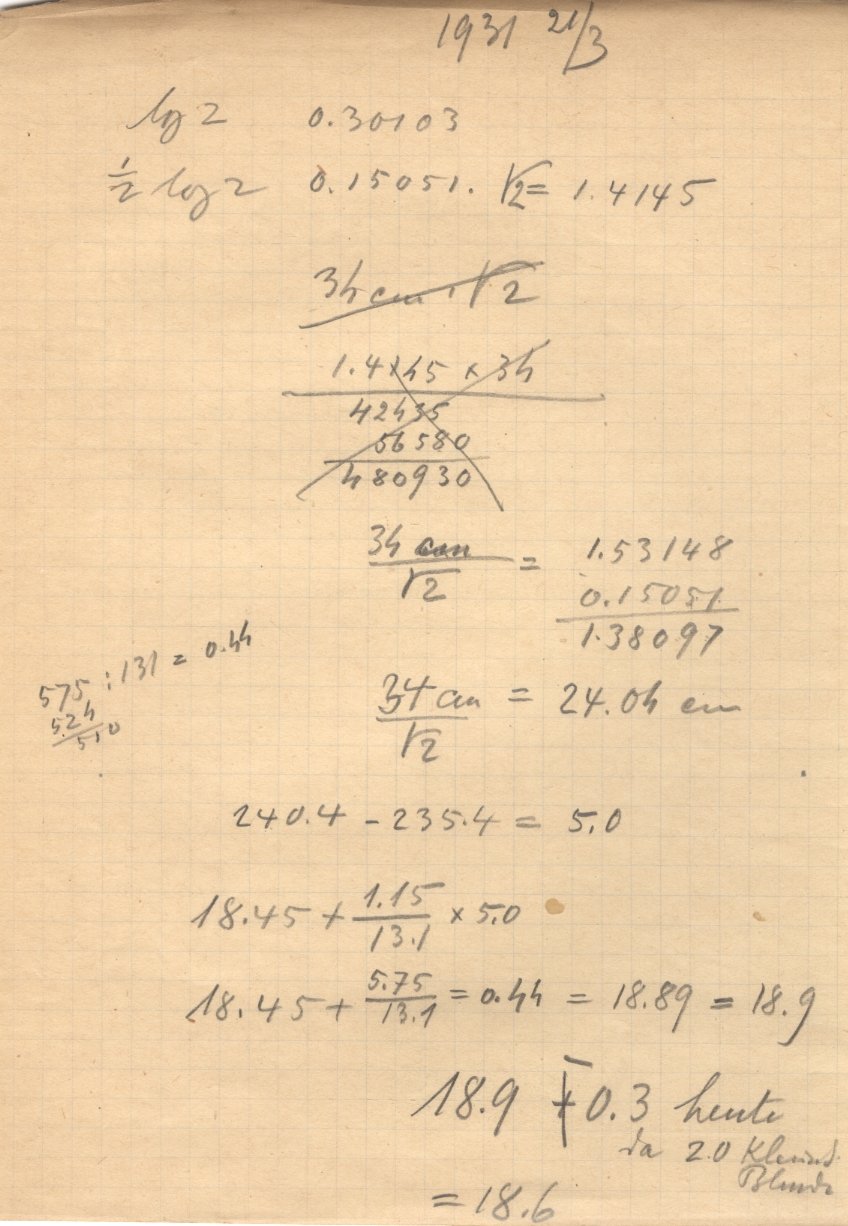 1931 21/3
lg 2 0.30103
1/2 log 2 0.15051. √2 = 1.4145
34 cm . √2
1.4145 × 34
42435
56580
480930
34 cm / √2 = 1.53148
0.15051
1.38097
575 : 131 = 0.44
524
510
34 cm / √2 = 24.04 cm
240.4 - 235.4 = 5.0
18.45 + 1.15/13.1 × 5.0
18.45 + 5.75/13.1 = 0.44 = 18.89 = 18.9
18.9 - 0.3 heute
da 2.0
Blende
= 18.6